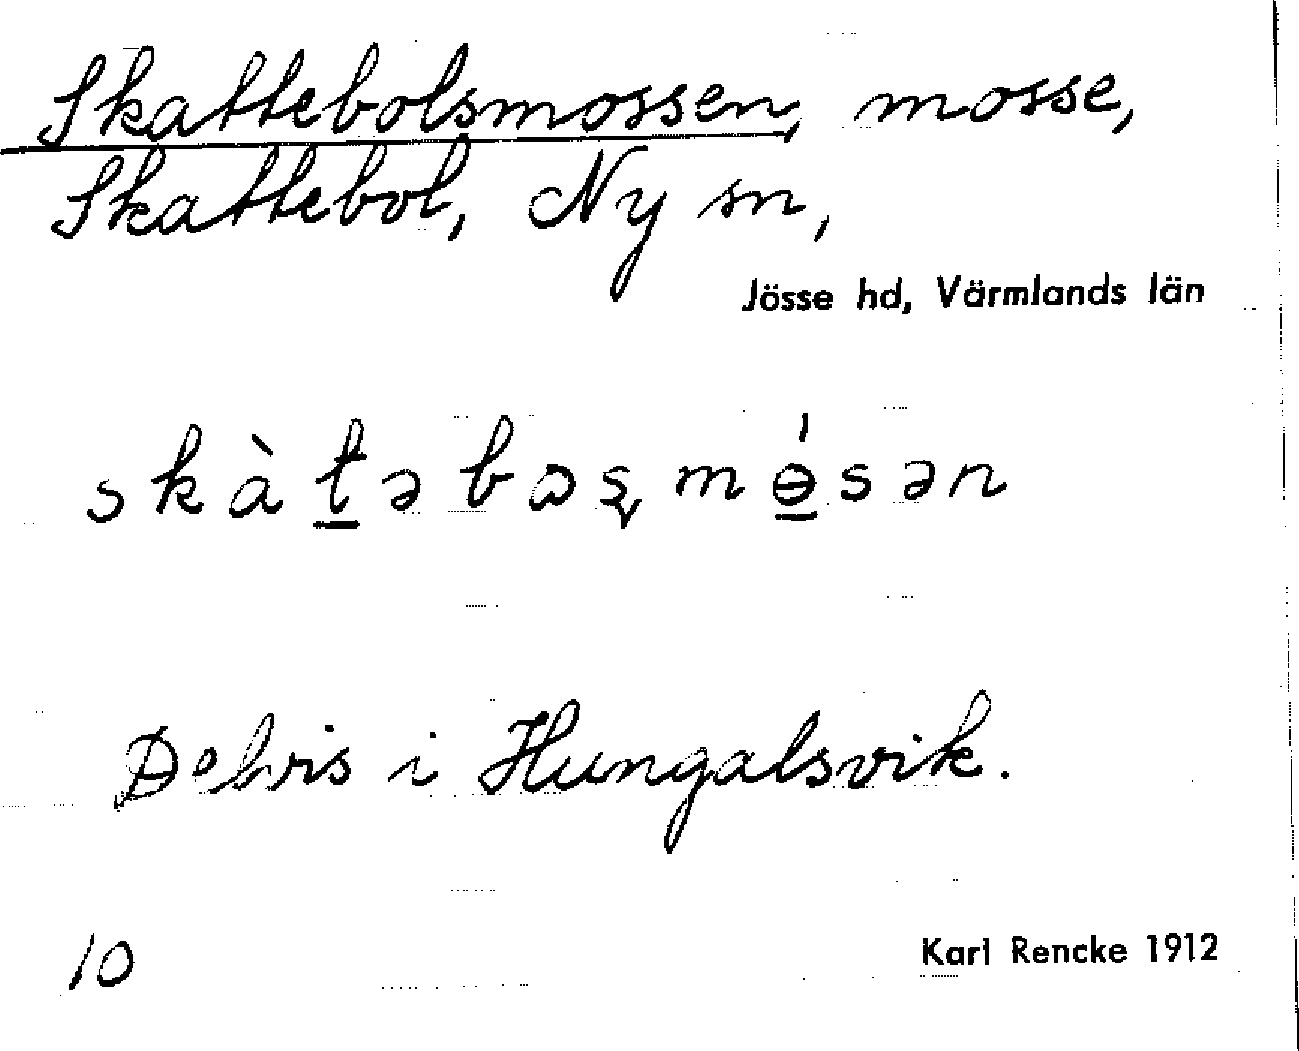 Skattebolsmossen, mosse,
Skattebol, Ny sn,
Jösse hd, Värmlands län
skàt̲əbɔşmɵ̲́sən
Delvis i Hungalsvik.
10
Karl Rencke 1912